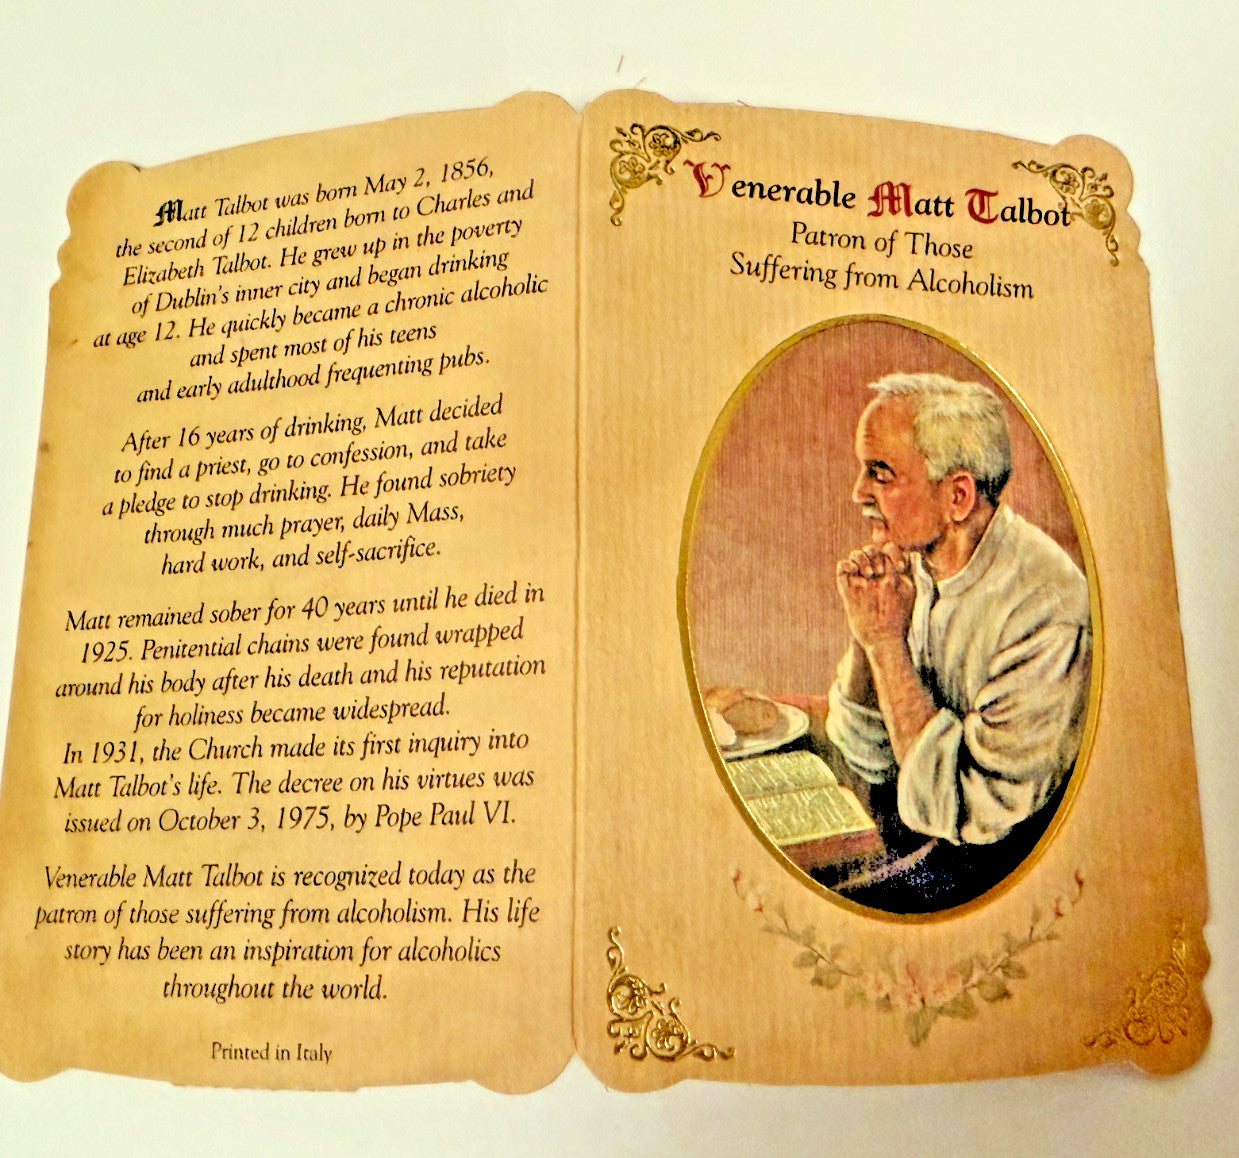 Matt Talbot was born May 2, 1856,
the second of 12 children born to Charles and
Elizabeth Talbot. He grew up in the poverty
of Dublin's inner city and began drinking
at age 12. He quickly became a chronic alcoholic
and spent most of his teens
and early adulthood frequenting pubs.
After 16 years of drinking, Matt decided
to find a priest, go to confession, and take
a pledge to stop drinking. He found sobriety
through much prayer, daily Mass,
hard work, and self-sacrifice.
Matt remained sober for 40 years until he died in
1925. Penitential chains were found wrapped
around his body after his death and his reputation
for holiness became widespread.
In 1931, the Church made its first inquiry into
Matt Talbot's life. The decree on his virtues was
issued on October 3, 1975, by Pope Paul VI.
Venerable Matt Talbot is recognized today as the
patron of those suffering from alcoholism. His life
story has been an inspiration for alcoholics
throughout the world.
Printed in Italy
Venerable Matt Talbot
Patron of Those
Suffering from Alcoholism